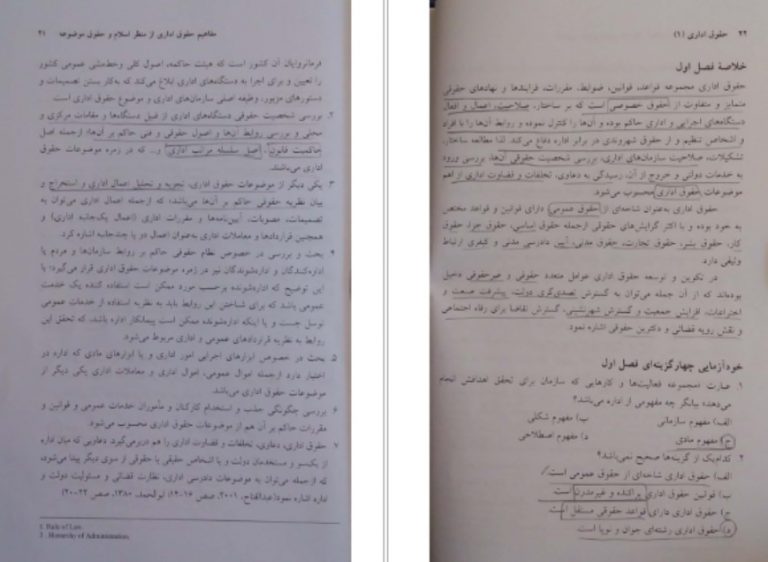 ۲۲ حقوق اداری (۱)
خلاصهٔ فصل اول
حقوق اداری مجموعه قواعد، قوانین، ضوابط، مقررات، فرایندها و نهادهای حقوقی
متمایز و متفاوت از حقوق خصوصی است که بر ساختار، صلاحیت، اعمال و افعال
دستگاه‌های اجرایی و اداری حاکم بوده و آن‌ها را کنترل نموده و روابط آن‌ها را با افراد
و اشخاص تنظیم و از حقوق شهروندی در برابر اداره دفاع می‌کند. لذا مطالعه ساختار،
تشکیلات، صلاحیت سازمان‌های اداری، بررسی شخصیت حقوقی آن‌ها، بررسی ورود
به خدمات دولتی و خروج از آن، رسیدگی به دعاوی، تخلفات و قضاوت اداری از اهم
موضوعات حقوق اداری محسوب می‌شود.
حقوق اداری به‌عنوان شاخه‌ای از حقوق عمومی دارای قوانین و قواعد مختص
به خود بوده و با اکثر گرایش‌های حقوقی ازجمله حقوق اساسی، حقوق جزا، حقوق
کار، حقوق بشر، حقوق تجارت، حقوق مدنی، آیین دادرسی مدنی و کیفری ارتباط
وثیقی دارد.
در تکوین و توسعه حقوق اداری عوامل متعدد حقوقی و غیرحقوقی دخیل
بوده‌اند که از آن جمله می‌توان به گسترش تصدی‌گری دولت، پیشرفت صنعت و
اختراعات، افزایش جمعیت و گسترش شهرنشینی، گسترش تقاضا برای رفاه اجتماعی
و نقش رویه قضائی و دکترین حقوقی اشاره نمود.
خودآزمایی چهارگزینه‌ای فصل اول
۱. عبارت «مجموعه فعالیت‌ها و کارهایی که سازمان برای تحقق اهدافش انجام
می‌دهد» بیانگر چه مفهومی از اداره می‌باشد؟
الف) مفهوم سازمانی ب) مفهوم شکلی
ج) مفهوم مادی د) مفهوم اصطلاحی
۲. کدام‌یک از گزینه‌ها صحیح نمی‌باشد؟
الف) حقوق اداری شاخه‌ای از حقوق عمومی است.
ب) قوانین حقوق اداری پراکنده و غیرمدون است.
ج) حقوق اداری دارای قواعد حقوقی مستقل است.
د) حقوق اداری رشته‌ای جوان و نوپا است.
مفاهیم حقوق اداری از منظر اسلام و حقوق موضوعه ۲۱
فرمانروایان آن کشور است که هیئت حاکمه، اصول کلی وخط‌مشی عمومی کشور
را تعیین و برای اجرا به دستگاه‌های اداری ابلاغ می‌کند که به‌کار بستن تصمیمات و
دستورهای مزبور، وظیفه اصلی سازمان‌های اداری و موضوع حقوق اداری است.
۲. بررسی شخصیت حقوقی دستگاه‌های اداری از قبیل دستگاه‌ها و مقامات مرکزی و
محلی و بررسی روابط آن‌ها و اصول حقوقی و فنی حاکم بر آن‌ها؛ ازجمله اصل
حاکمیت قانون، اصل سلسله مراتب اداری و... که در زمره موضوعات حقوق
اداری می‌باشند.
۳. یکی دیگر از موضوعات حقوق اداری، تجزیه و تحلیل اعمال اداری و استخراج و
بیان نظریه حقوقی حاکم بر آن‌ها می‌باشد، که ازجمله اعمال اداری می‌توان به
تصمیمات، مصوبات، آیین‌نامه‌ها و مقررات اداری (اعمال یک‌جانبه اداری) و
همچنین قراردادها و معاملات اداری به‌عنوان اعمال دو یا چندجانبه اشاره کرد.
۴. بحث و بررسی در خصوص نظام حقوقی حاکم بر روابط سازمان‌ها و مردم یا
اداره‌کنندگان و اداره‌شوندگان نیز در زمره موضوعات حقوق اداری قرار می‌گیرد؛ با
این توضیح که اداره‌شونده برحسب مورد ممکن است استفاده کننده یک خدمت
عمومی باشد که برای شناختن این روابط باید به نظریه استفاده از خدمات عمومی
توسل جست و یا اینکه اداره‌شونده ممکن است پیمانکار اداره باشد، که تحقق این
روابط به نظریه قراردادهای عمومی و اداری مربوط می‌شود.
۵. بحث در خصوص ابزارهای اجرایی امور اداری و یا ابزارهای مادی که اداره در
اختیار دارد ازجمله اموال عمومی، اموال اداری و معاملات اداری یکی دیگر از
موضوعات حقوق اداری می‌باشد.
۶. بررسی چگونگی جذب و استخدام کارکنان و مأموران خدمات عمومی و قوانین و
مقررات حاکم بر آن هم از موضوعات حقوق اداری محسوب می‌شود.
۷. حقوق اداری، دعاوی، تخلفات و قضاوت اداری را هم دربرمی‌گیرد. دعاویی که میان اداره
از یک‌سو و مستخدمان دولت و یا اشخاص حقیقی یا حقوقی از سوی دیگر پیدا می‌شود،
که ازجمله می‌توان به موضوعات دادرسی اداری، نظارت قضائی و مسئولیت دولت و
اداره اشاره نمود(عبدالفتاح، ۲۰۰۱، صص ۱۶-۱۴؛ ابوالحمد، ۱۳۸۰، صص ۲۲-۲۰)
1. Rule of Law.
2. Hierarchy of Administration.